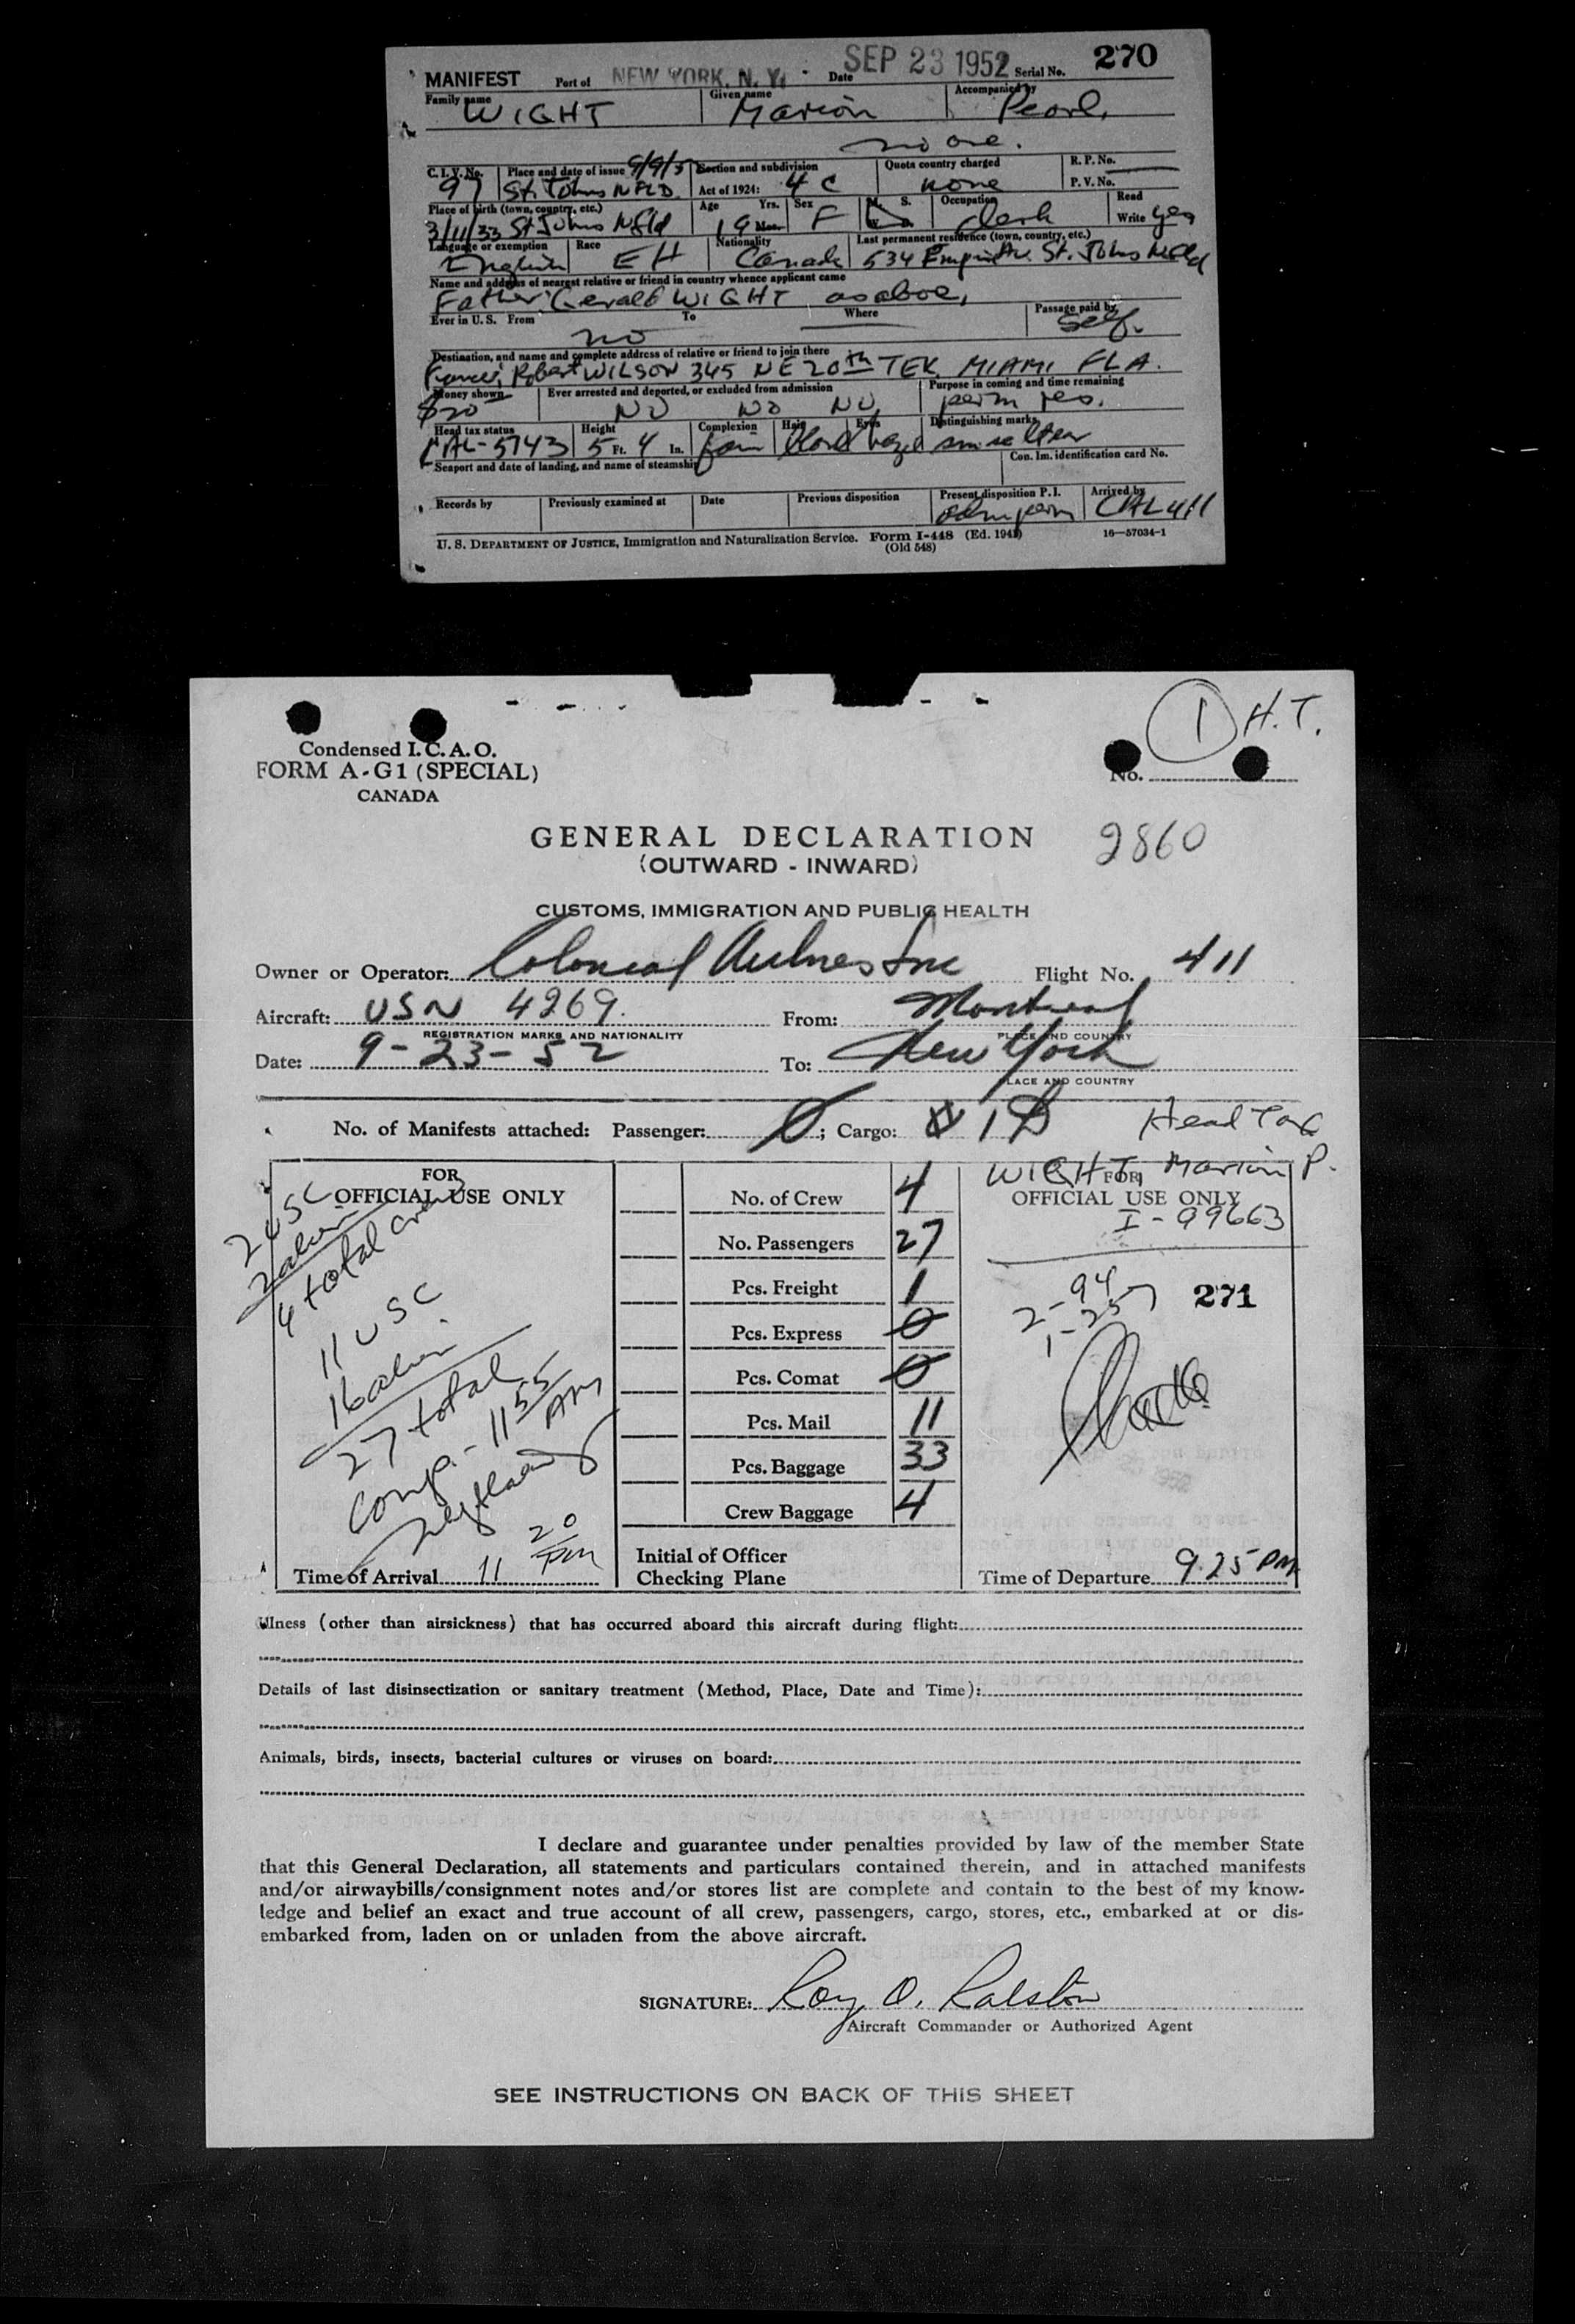 MANIFEST Port of NEW YORK, N. Y. Date SEP 23 1952 Serial No. 270
Family name Given name Accompanied by
WIGHT Marion Pearl,
no one.
C. I. V. No. Place and date of issue 9/9/5 Section and subdivision Quota country charged R. P. No.
97 St. Johns NFLD Act of 1924: 4 C none P. V. No.
Place of birth (town, country, etc.) Age Yrs. Sex M. S. Occupation Read
3/11/33 St Johns Nfld 19 Mos. F W. D. clerk Write yes
Language or exemption Race Nationality Last permanent residence (town, country, etc.)
English EH Canada 534 Empire Av. St. Johns Nfld
Name and address of nearest relative or friend in country whence applicant came
Father Gerald WIGHT as above,
Ever in U. S. From To Where Passage paid by
no self.
Destination, and name and complete address of relative or friend to join there
Francis Robert WILSON 345 NE 20th TER. MIAMI FLA.
Money shown Ever arrested and deported, or excluded from admission Purpose in coming and time remaining
$20 NO NO NO perm res.
Head tax status Height Complexion Hair Eyes Distinguishing marks
CAL-5743 5 Ft. 4 In. fair blond hazel
Seaport and date of landing, and name of steamship Con. Im. identification card No.
Records by Previously examined at Date Previous disposition Present disposition P. I. Arrived by
adm perm CAL 411
U. S. DEPARTMENT OF JUSTICE, Immigration and Naturalization Service. Form I-448 (Ed. 1942) 16—57034-1
(Old 548)
1 H. T.
Condensed I. C. A. O.
FORM A-G1 (SPECIAL) No.
CANADA
GENERAL DECLARATION 2860
(OUTWARD - INWARD)
CUSTOMS, IMMIGRATION AND PUBLIC HEALTH
Owner or Operator: Colonial Airlines Inc Flight No. 411
Aircraft: USN 4269. From: Montreal
REGISTRATION MARKS AND NATIONALITY PLACE AND COUNTRY
Date: 9-23-52 To: New York
PLACE AND COUNTRY
No. of Manifests attached: Passenger: 0; Cargo: 1 Head Tax
WIGHT, Marion P.
FOR FOR
OFFICIAL USE ONLY No. of Crew 4 OFFICIAL USE ONLY
2 USC I-99663
2 alien
4 total crew
No. Passengers 27
11 USC Pcs. Freight 1 2-94 271
16 alien Pcs. Express 0 1-257
27 total Pcs. Comat 0
Comp. - 11 55 AM Pcs. Mail 11
Pcs. Baggage 33
Crew Baggage 4
Initial of Officer
Time of Arrival 11 20 PM Checking Plane Time of Departure 9.25 PM
Illness (other than airsickness) that has occurred aboard this aircraft during flight:
Details of last disinsectization or sanitary treatment (Method, Place, Date and Time):
Animals, birds, insects, bacterial cultures or viruses on board:
I declare and guarantee under penalties provided by law of the member State
that this General Declaration, all statements and particulars contained therein, and in attached manifests
and/or airwaybills/consignment notes and/or stores list are complete and contain to the best of my know-
ledge and belief an exact and true account of all crew, passengers, cargo, stores, etc., embarked at or dis-
embarked from, laden on or unladen from the above aircraft.
SIGNATURE: Roy O. Ralston
Aircraft Commander or Authorized Agent
SEE INSTRUCTIONS ON BACK OF THIS SHEET